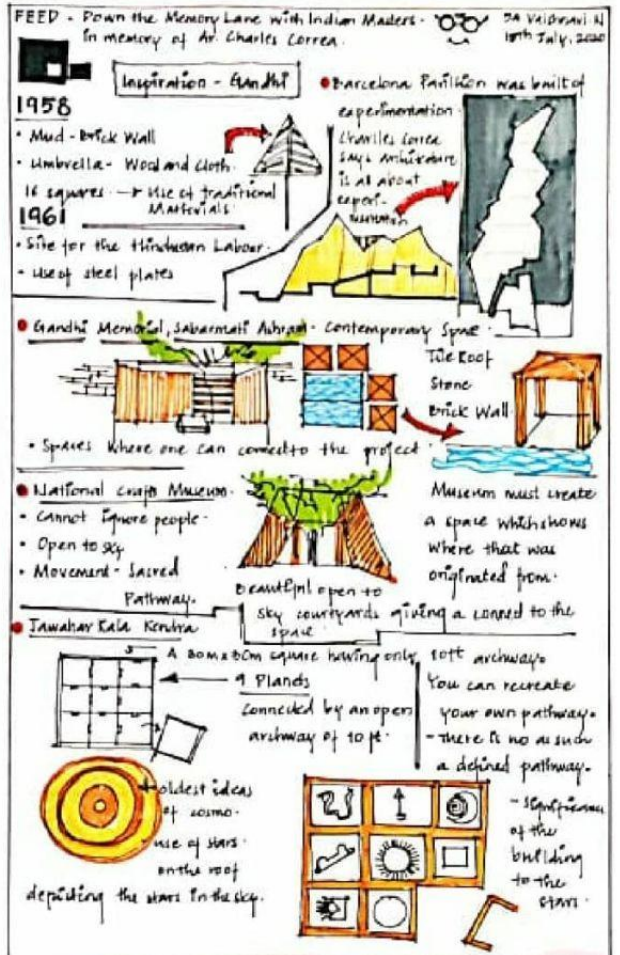 FEED - Down the Memory Lane with Indian Masters.
in memory of Ar. Charles Correa.
SA Vaishnavi N
18th July, 2020
Inspiration - Gandhi
1958
• Mud - Brick Wall
• Umbrella - Wood and Cloth.
16 squares. → Use of traditional
Materials.
1961
• Site for the Hindustan Labour.
• Use of steel plates
• Barcelona Pavillion was built of
experimentation.
Charles Correa
says architecture
is all about
experi-
mentation
• Gandhi Memorial, Sabarmati Ashram - Contemporary Space.
Tile Roof
Stone
Brick Wall.
• Spaces where one can connect to the project.
• National Crafts Museum.
• Cannot ignore people.
• Open to sky
• Movement - Sacred
Pathway.
Beautiful open to
sky courtyards giving a connect to the
space.
Museum must create
a space which shows
where that was
originated from.
• Jawahar Kala Kendra
A 30m x 30m square having only
9 Planets
connected by an open
archway of 10 ft.
10ft archway.
You can recreate
your own pathway.
- There is no as such
a defined pathway.
oldest ideas
of cosmo.
use of stars.
on the roof
depicting the stars in the sky.
- Significance
of the
building
to the
stars.